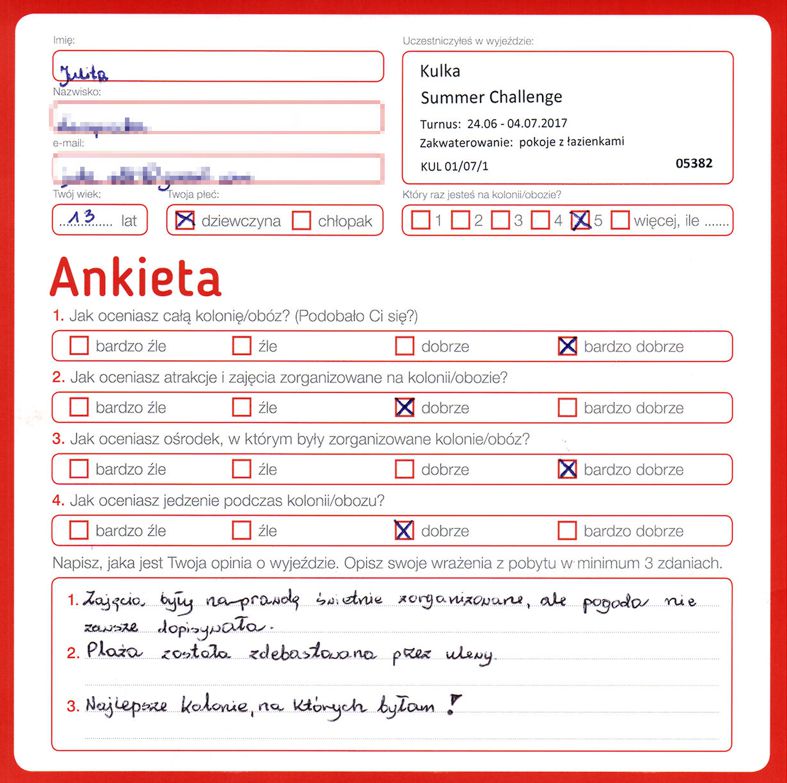 Imię:
Julita
Nazwisko:
e-mail:
Twój wiek:
Twoja płeć:
13 lat
dziewczyna
chłopak
Uczestniczyłeś w wyjeździe:
Kulka
Summer Challenge
Turnus: 24.06 - 04.07.2017
Zakwaterowanie: pokoje z łazienkami
KUL 01/07/1
05382
Który raz jesteś na kolonii/obozie?
1 2 3 4 5 więcej, ile .......
Ankieta
1. Jak oceniasz całą kolonię/obóz? (Podobało Ci się?)
bardzo źle źle dobrze bardzo dobrze
2. Jak oceniasz atrakcje i zajęcia zorganizowane na kolonii/obozie?
bardzo źle źle dobrze bardzo dobrze
3. Jak oceniasz ośrodek, w którym były zorganizowane kolonie/obóz?
bardzo źle źle dobrze bardzo dobrze
4. Jak oceniasz jedzenie podczas kolonii/obozu?
bardzo źle źle dobrze bardzo dobrze
Napisz, jaka jest Twoja opinia o wyjeździe. Opisz swoje wrażenia z pobytu w minimum 3 zdaniach.
1. Zajęcia były na prawdę świetnie zorganizowane, ale pogoda nie
zawsze dopisywała.
2. Plaża została zdebastowana przez ulewy.
3. Najlepsze kolonie, na których byłam!